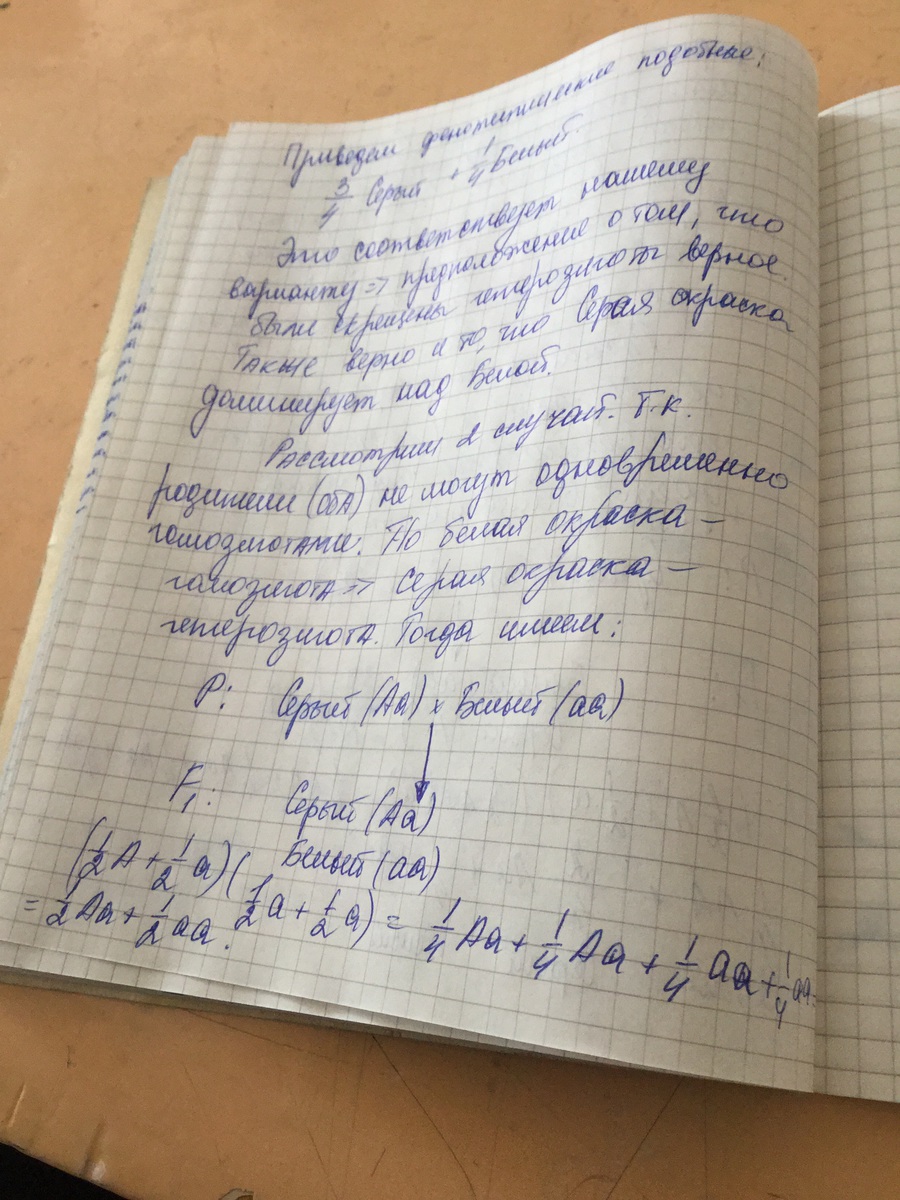 Приведем фенотипические подобные:
3/4 Серый + 1/4 Белый.
Это соответствует нашему
варианту => предположение о том, что
были скрещены гетерозиготы верное.
Также верно и то, что Серая окраска
доминирует над Белой.
Рассмотрим 2 случай. Т.к.
родители (оба) не могут одновременно
гомозиготами. Но белая окраска –
гомозигота => Серая окраска –
гетерозигота. Тогда имеем:
P: Серый (Aa) x Белый (aa)
F1: Серый (Aa)
Белый (aa)
(1/2 A + 1/2 a)(1/2 a + 1/2 a) = 1/4 Aa + 1/4 Aa + 1/4 aa + 1/4 aa =
= 1/2 Aa + 1/2 aa.